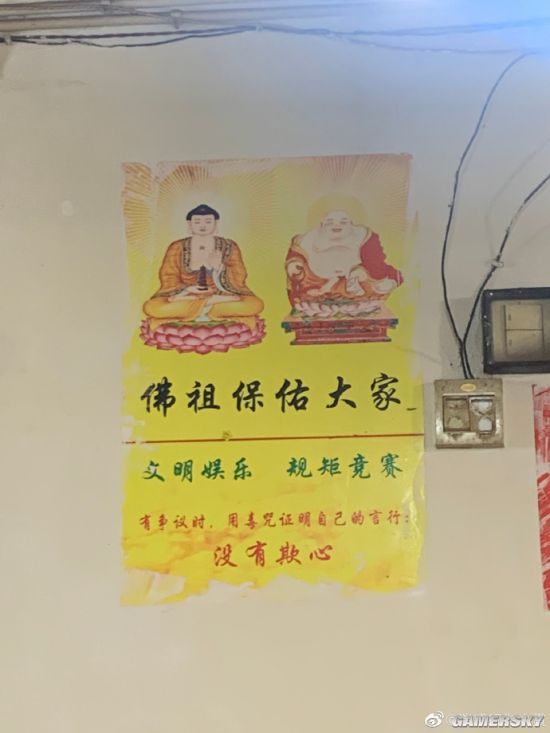 佛祖保佑大家
文明娱乐 规矩竞赛
有争议时，用毒咒证明自己的言行：
没有欺心
GAMERSKY